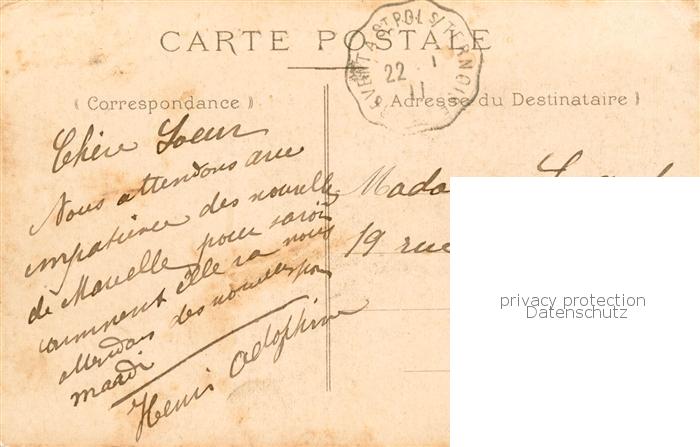 CARTE POSTALE
22 1
11
( Correspondance )
Adresse du Destinataire )
Chère Soeur
Nous attendons avec
impatience des nouvelles
de Marcelle pour savoir
comment elle va nous
attendons des nouvelles pour
mardi
Henri Adolphine
19 rue
privacy protection
Datenschutz